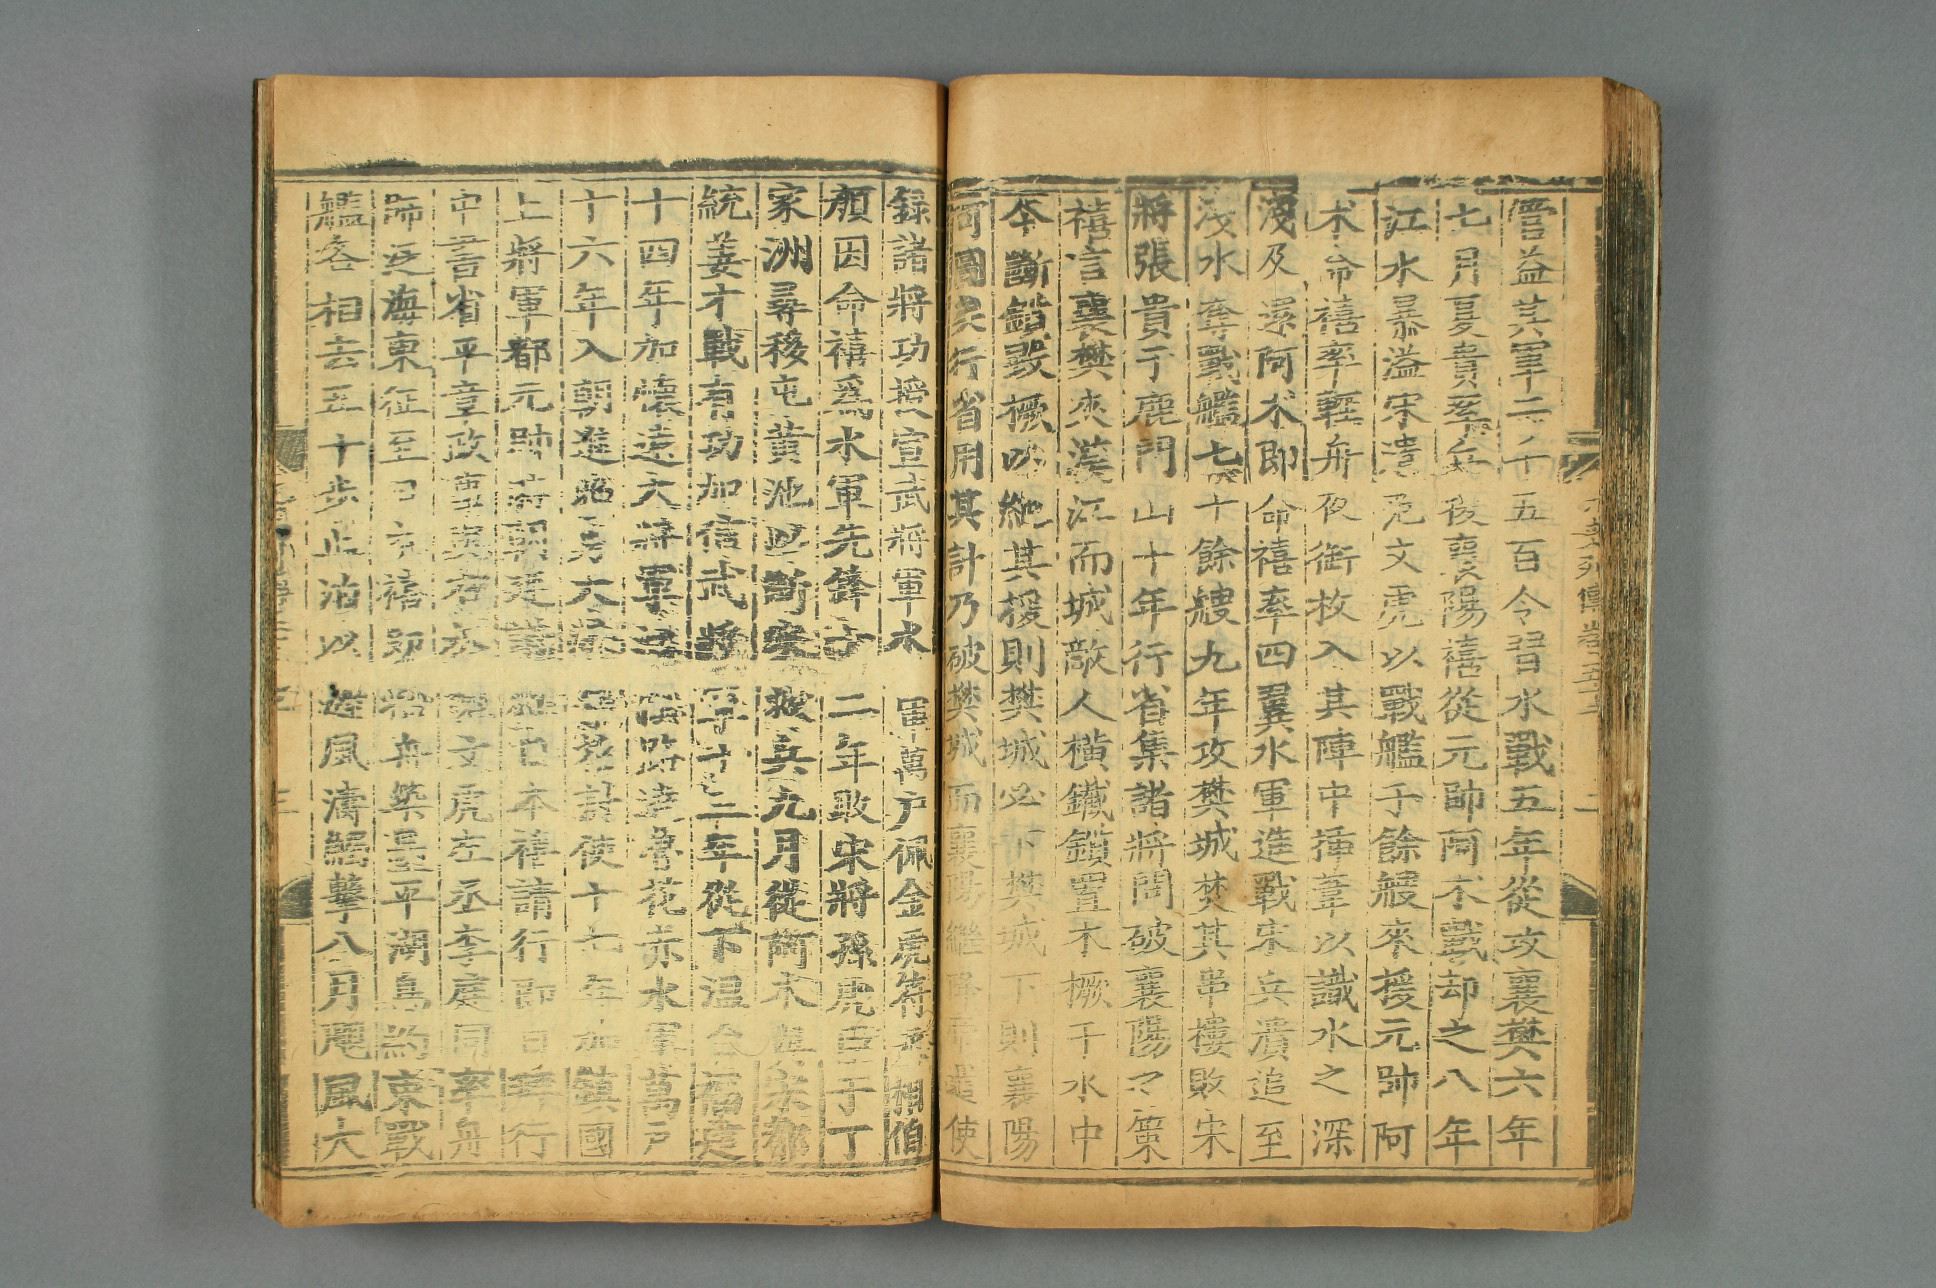 管益其軍二千五百令習水戰五年從攻襄樊六年
七月夏貴率兵援襄陽禧從元帥阿朮戰却之八年
江水暴溢宋遣范文虎以戰艦千餘艘來援元帥阿
朮命禧率輕舟夜銜枚入其陣中揷葦以識水之深
淺及還阿朮即命禧率四翼水軍造戰宋兵潰追至
淺水奪戰艦七十餘艘九年攻樊城焚其串樓敗宋
將張貴于鹿門山十年行省集諸將問破襄陽之策
禧言襄樊夾漢江而城敵人橫鐵鎖置木橛于水中
今斷鎖毀橛以絶其援則樊城必下樊城下則襄陽
可圖矣行省用其計乃破樊城而襄陽繼降帝遣使
錄諸將功授宣武將軍水軍萬戶佩金虎符丞相伯
顏因命禧爲水軍先鋒十二年敗宋將孫虎臣于丁
家洲尋移屯黃池以斷宋救兵九月從阿朮與宋都
統姜才戰有功加信武將軍十二年從下溫台福建
十四年加懷遠大將軍江陰路達魯花赤水軍萬戶
十六年入朝進昭勇大將軍招討使十七年加鎮國
上將軍都元帥時朝廷議征日本禧請行即日拜行
中書省平章政事與右丞范文虎左丞李庭同率舟
師泛海東征至日本禧即捨舟築壘平湖島約束戰
艦各相去五十步止泊以避風濤觸擊八月颶風大